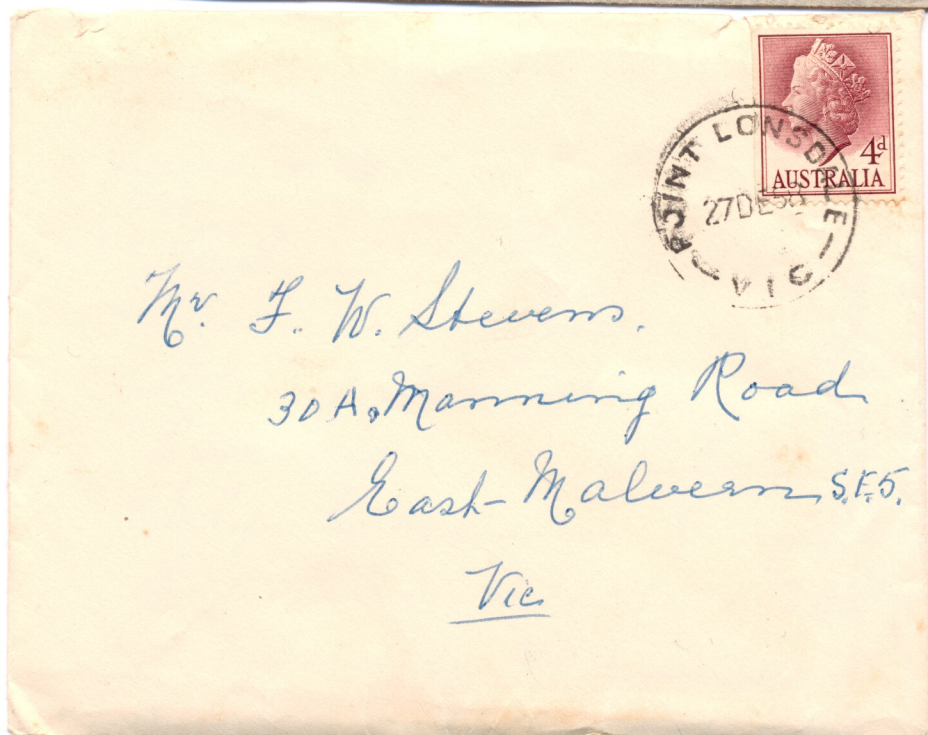 4d
AUSTRALIA
POINT LONSDALE
27 DE 58
VIC
Mr. F. W. Stevens.
30A, Manning Road
East Malvern S.E.5.
Vic